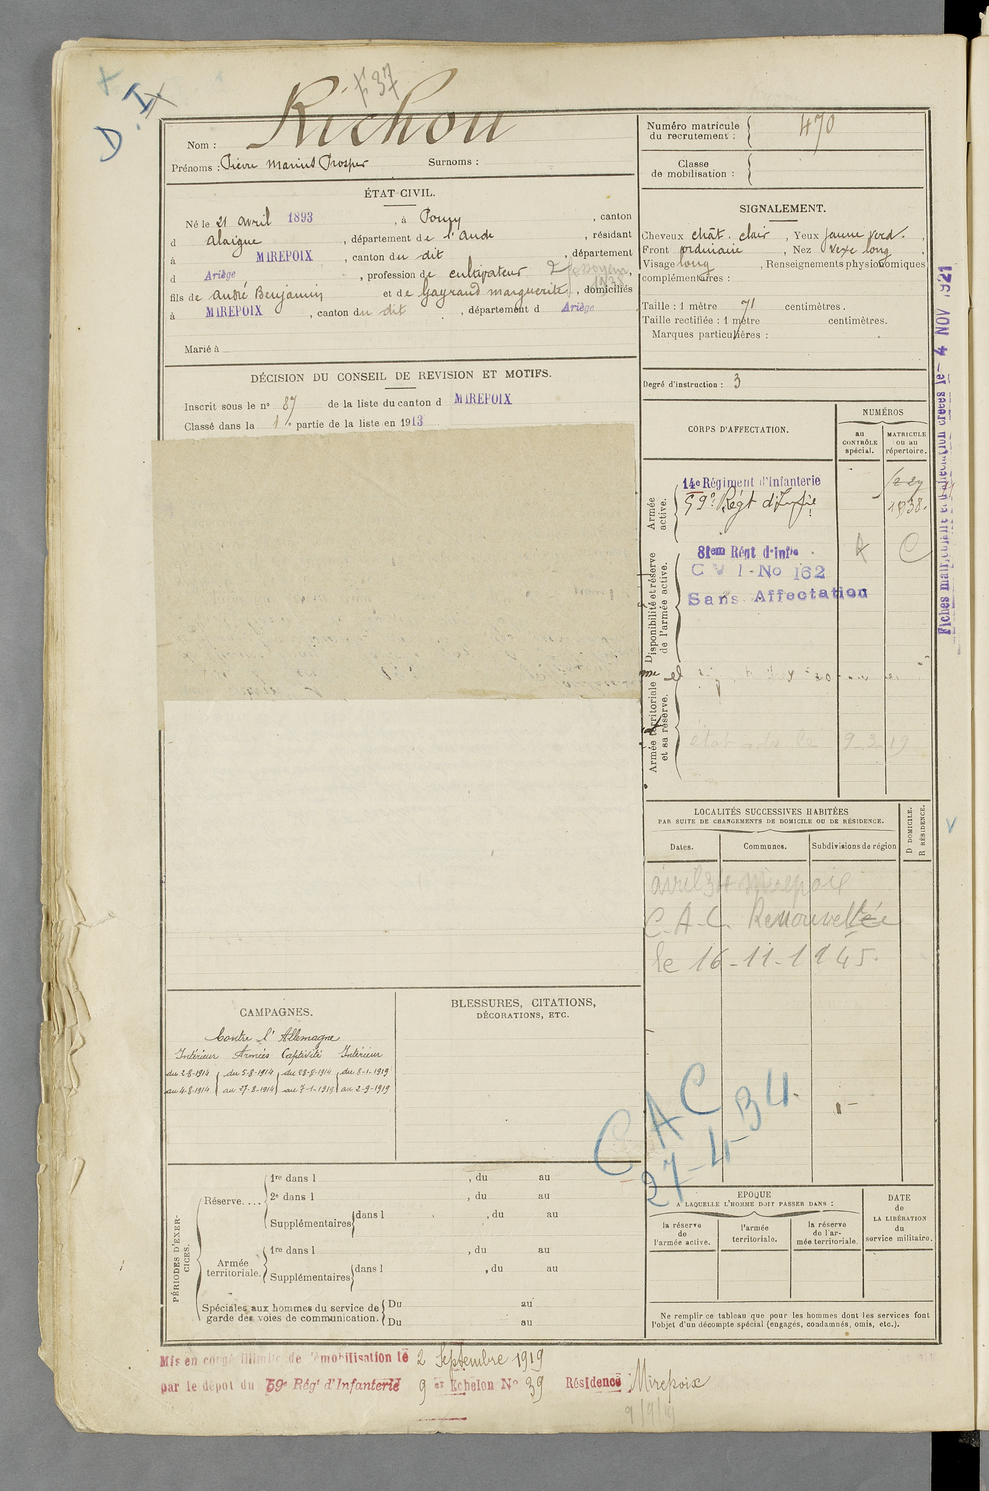 f° 37
D. IX
Nom : Richou
Prénoms : Pierre Marius Prosper Surnoms :
ÉTAT CIVIL.
Né le 21 avril 1893, à Pomy, canton
d Alaigne, département de l'Aude, résidant
à MIREPOIX, canton du dit, département
d Ariège, profession de cultivateur
fils de André Benjamin et de Gayraud Marguerite, domiciliés
à MIREPOIX, canton du dit, département d Ariège
Marié à
DÉCISION DU CONSEIL DE REVISION ET MOTIFS.
Inscrit sous le n° 87 de la liste du canton d MIREPOIX
Classé dans la 1re partie de la liste en 1913
CAMPAGNES.
Contre l'Allemagne
Intérieur Armées Captivité Intérieur
du 2-8-1914 du 5-8-1914 du 28-8-1914 du 8-1-1919
au 4-8-1914 au 27-8-1914 au 7-1-1919 au 2-9-1919
BLESSURES, CITATIONS,
DÉCORATIONS, ETC.
PÉRIODES D'EXER-
CICES.
Réserve....
1re dans l , du au
2e dans l , du au
Supplémentaires dans l , du au
Armée
territoriale.
1re dans l , du au
Supplémentaires dans l , du au
Spéciales aux hommes du service de
garde des voies de communication.
Du au
Du au
Numéro matricule
du recrutement : 470
Classe
de mobilisation :
SIGNALEMENT.
Cheveux chât. clair, Yeux jaune verd.
Front ordinaire, Nez vexe long
Visage long, Renseignements physionomiques
complémentaires :
Taille : 1 mètre 71 centimètres.
Taille rectifiée : 1 mètre centimètres.
Marques particulières :
Degré d'instruction : 3
CORPS D'AFFECTATION.
NUMÉROS
au
CONTRÔLE
spécial.
MATRICULE
ou au
répertoire.
Armée
active.
14e Régiment d'Infanterie
59e Régt d'Infie 1838.
Disponibilité et réserve
de l'armée active.
81em Régt d'Infie A C
C V I - No 162
Sans Affectation
Armée territoriale
et sa réserve.
LOCALITÉS SUCCESSIVES HABITÉES
PAR SUITE DE CHANGEMENTS DE DOMICILE OU DE RÉSIDENCE.
D DOMICILE.
R RÉSIDENCE.
Dates. Communes. Subdivisions de région
avril 34 Mirepoix
C.A.C. Renouvellée
le 16-11-1945.
CAC
27-4-34.
EPOQUE
A LAQUELLE L'HOMME DOIT PASSER DANS :
la réserve
de
l'armée active.
l'armée
territoriale.
la réserve
de l'ar-
mée territoriale.
DATE
de
LA LIBÉRATION
du
service militaire.
Ne remplir ce tableau que pour les hommes dont les services font
l'objet d'un décompte spécial (engagés, condamnés, omis, etc.).
Mis en congé illimité de démobilisation le 2 Septembre 1919
par le dépot du 59e Régt d'Infanterie 9 er Echelon N° 39 Résidence Mirepoix
9/9/19